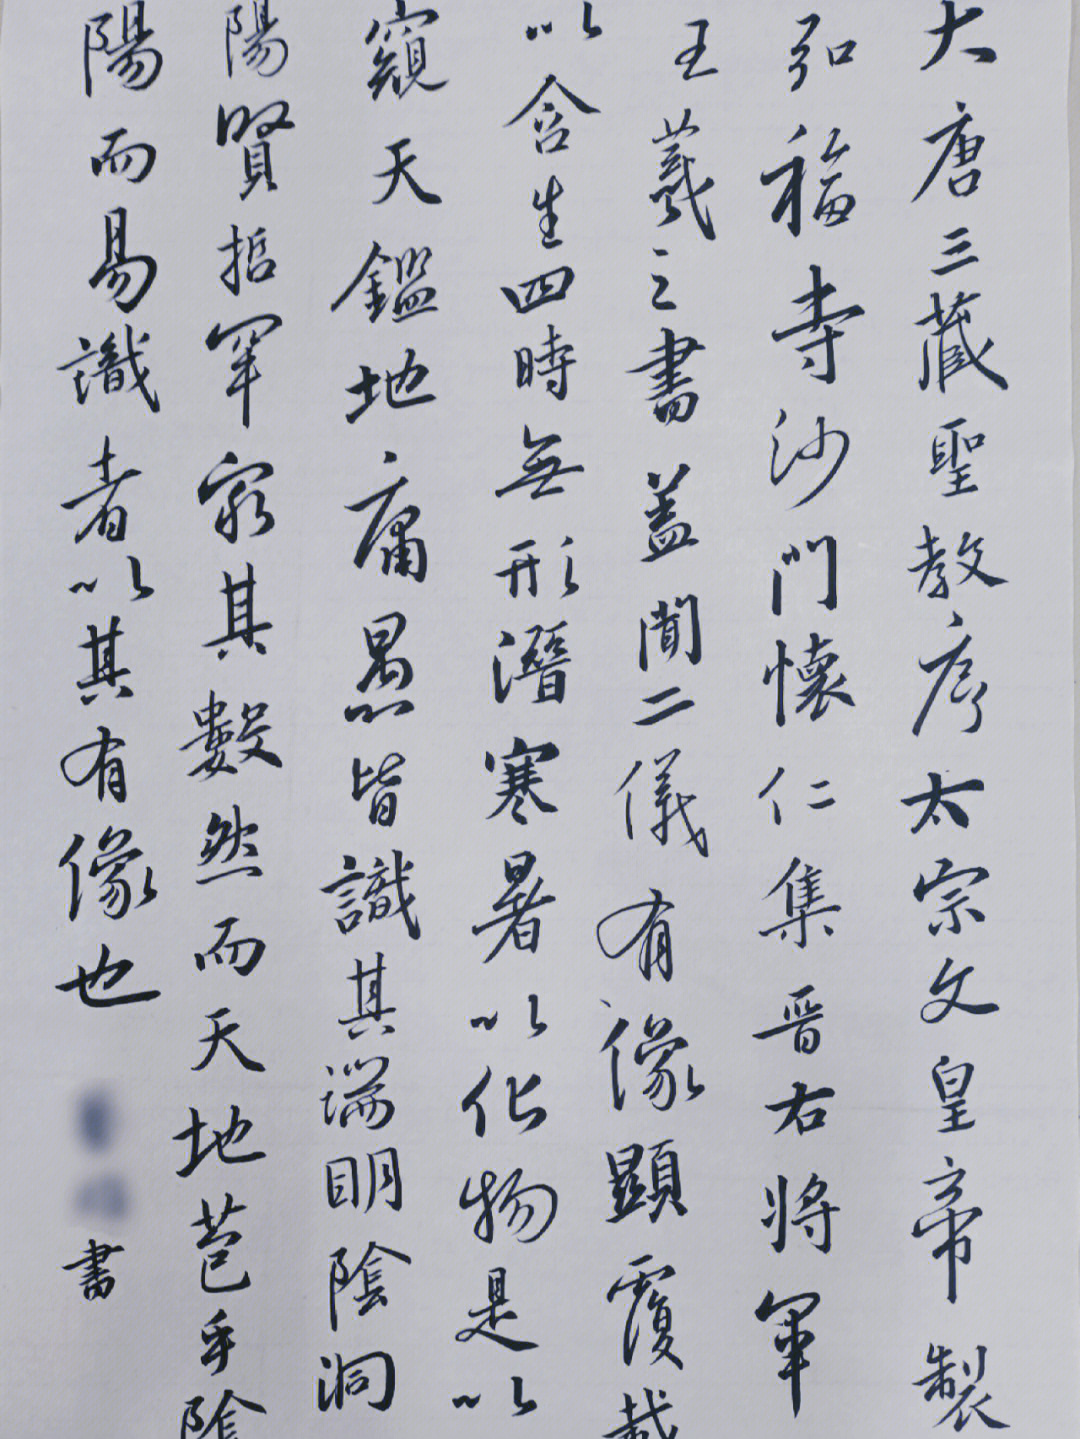 大唐三藏聖教序太宗文皇帝製
弘福寺沙門懷仁集晋右將軍
王羲之書蓋聞二儀有像顯覆載
以含生四時無形潛寒暑以化物是以
窺天鑑地庸愚皆識其端明陰洞
陽賢哲罕窮其數然而天地苞乎陰
陽而易識者以其有像也 書